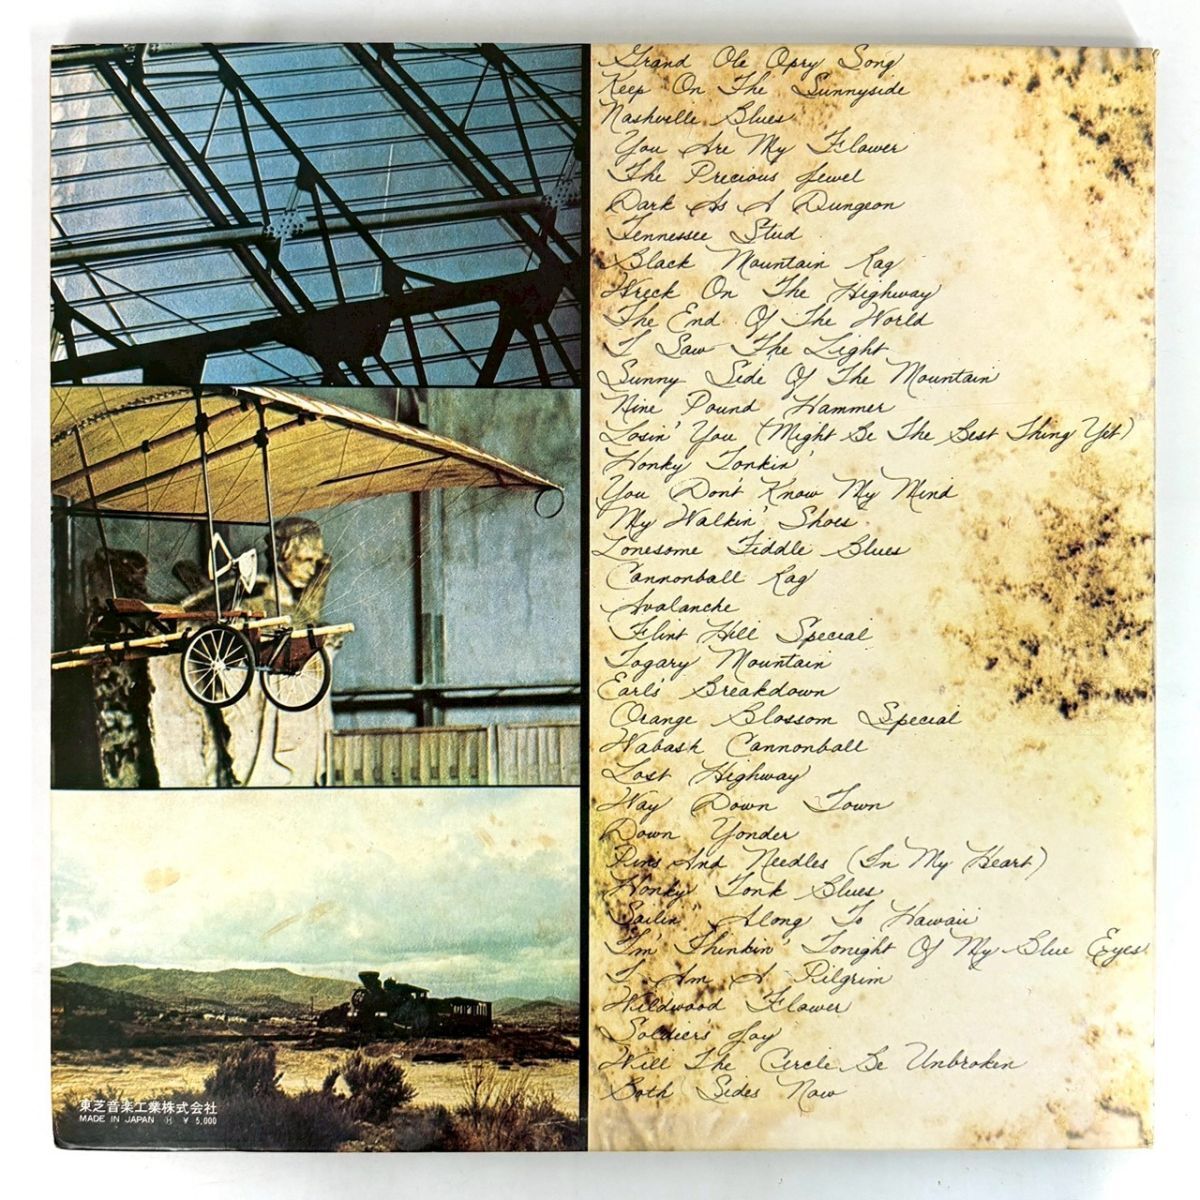 Grand Ole Opry Song
Keep On The Sunnyside
Nashville Blues
You Are My Flower
The Precious Jewel
Dark As A Dungeon
Tennessee Stud
Black Mountain Rag
Wreck On The Highway
The End Of The World
I Saw The Light
Sunny Side Of The Mountain
Nine Pound Hammer
Losin' You (Might Be The Best Thing Yet)
Honky Tonkin'
You Don't Know My Mind
My Walkin' Shoes
Lonesome Fiddle Blues
Cannonball Rag
Avalanche
Flint Hill Special
Togary Mountain
Earl's Breakdown
Orange Blossom Special
Wabash Cannonball
Lost Highway
Way Down Town
Down Yonder
Pins And Needles (In My Heart)
Honky Tonk Blues
Sailin' Along To Hawaii
I'm Thinkin' Tonight Of My Blue Eyes
I Am A Pilgrim
Wildwood Flower
Soldier's Joy
Will The Circle Be Unbroken
Both Sides Now
東芝音楽工業株式会社
MADE IN JAPAN Ⓗ ¥ 5,000